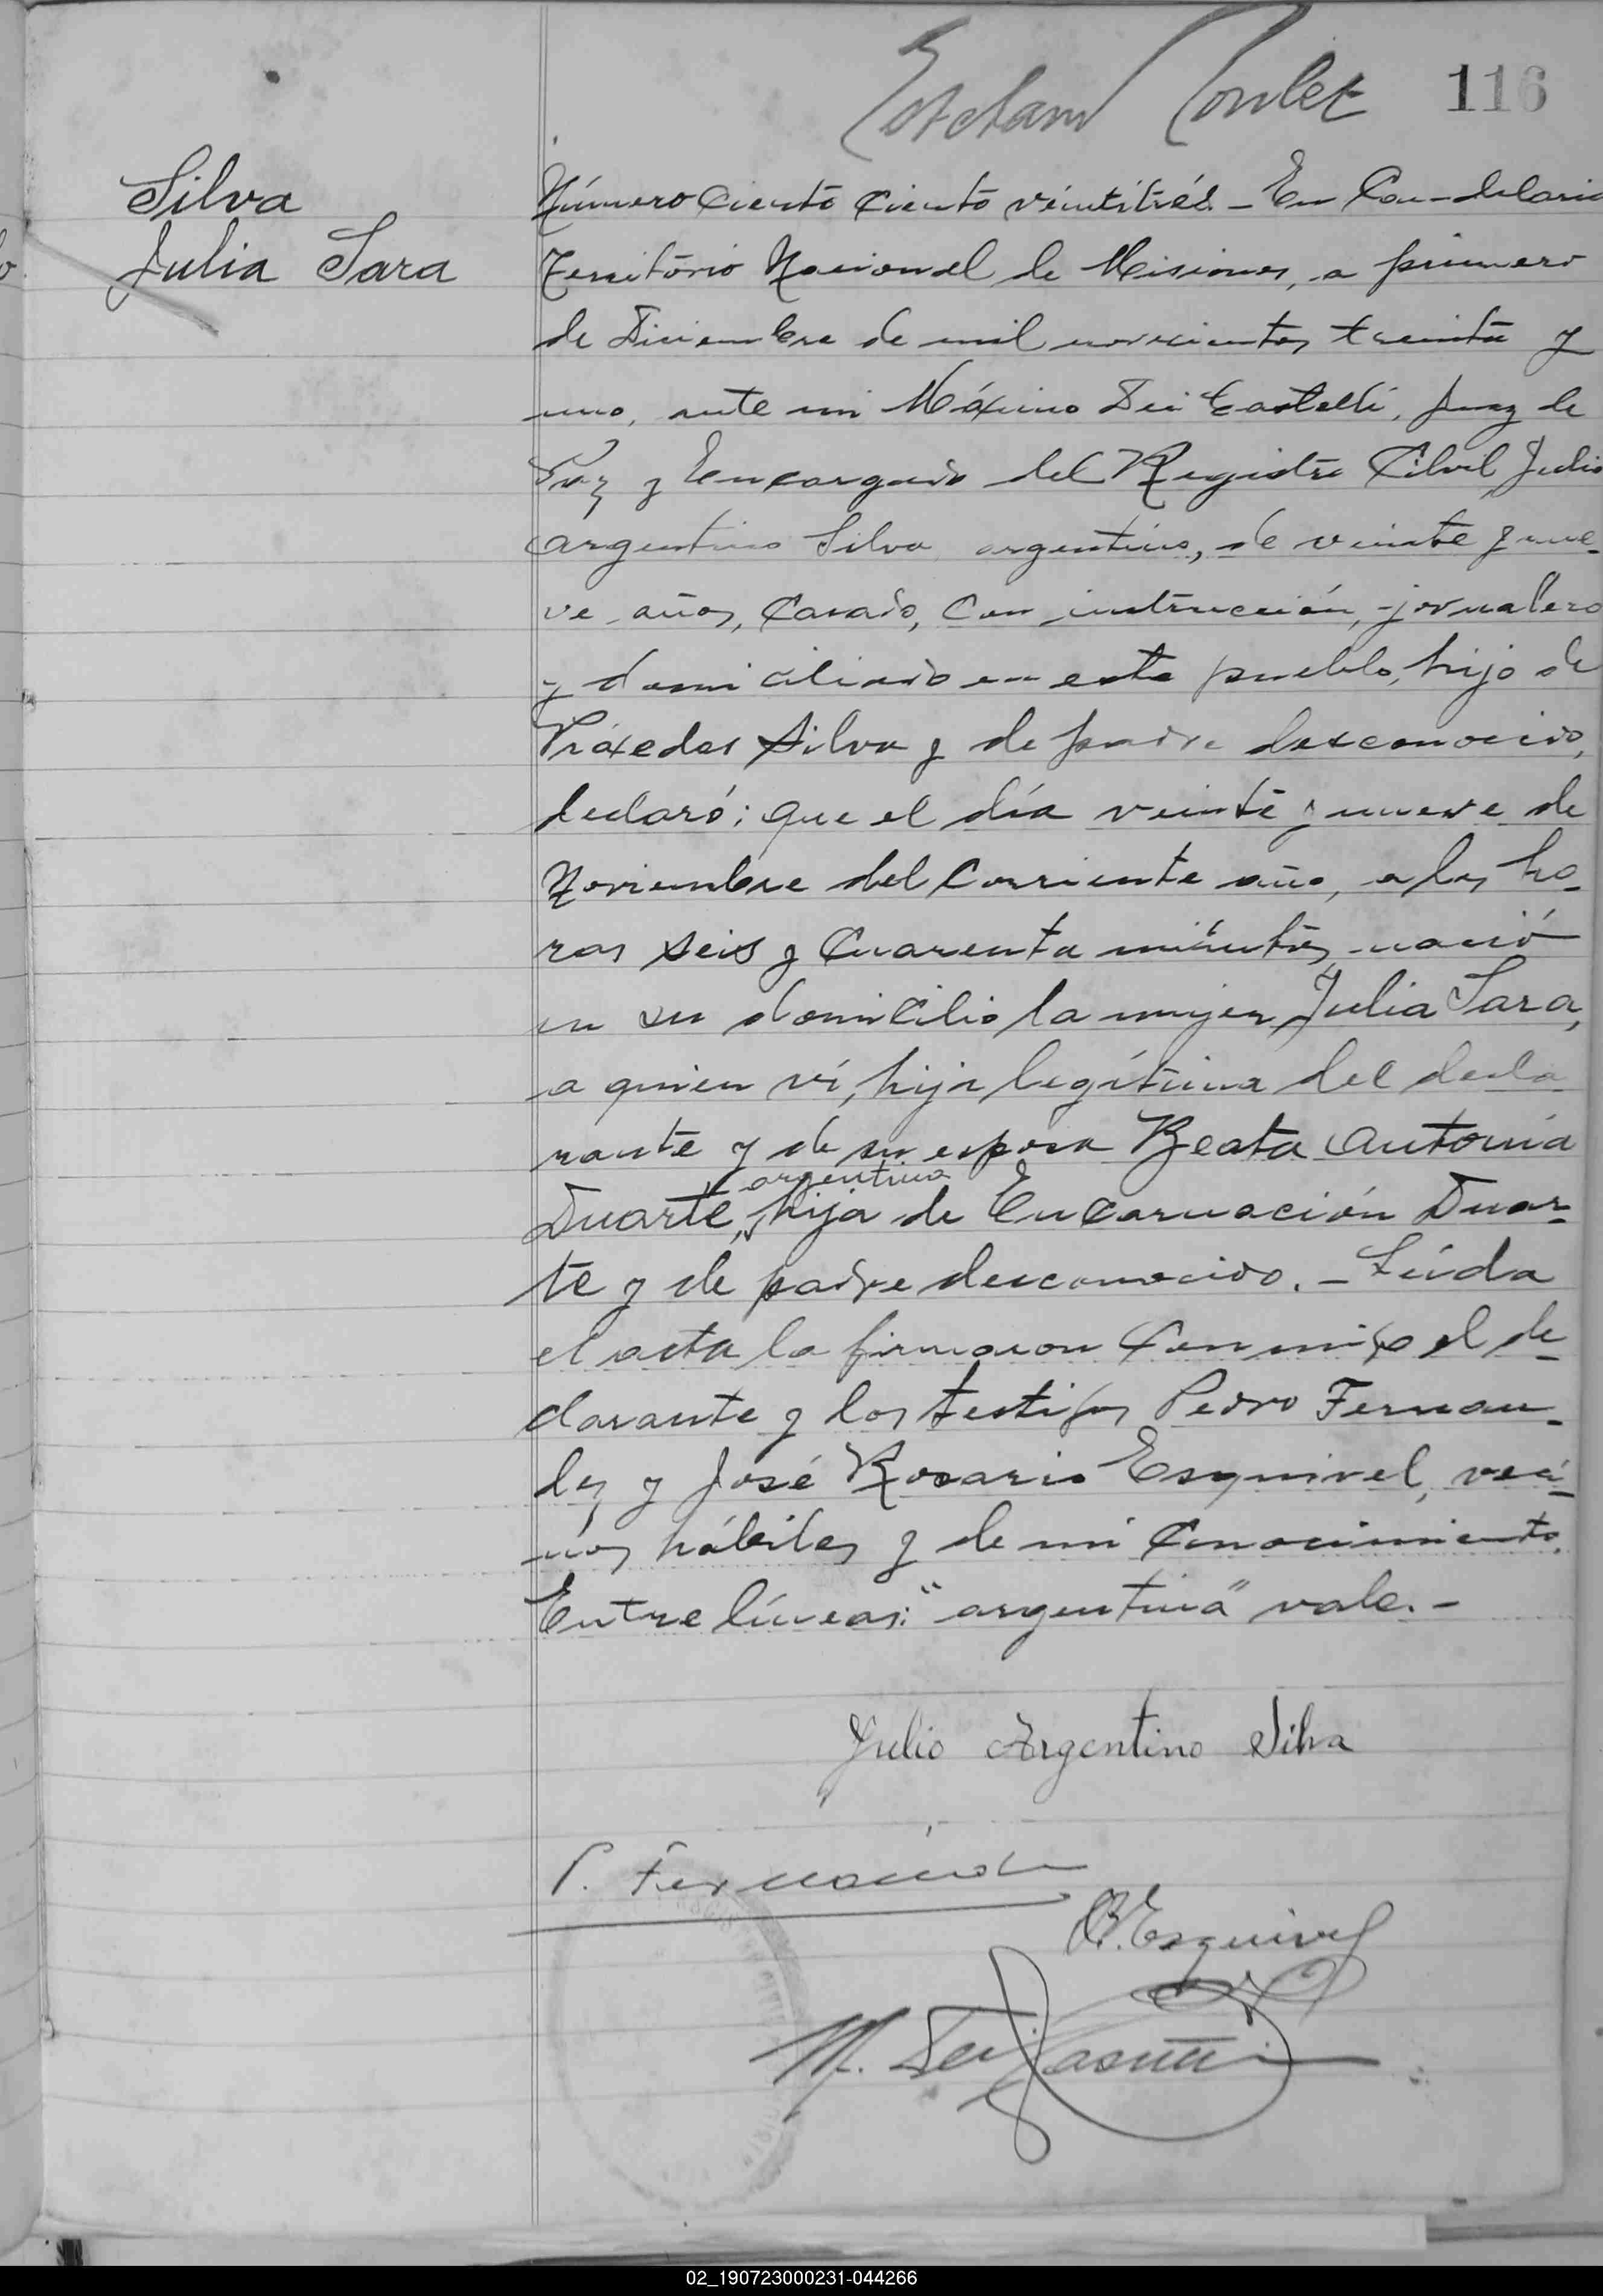 116
Silva
Julia Sara
Número Ciento Ciento veintitrés. - En Candelaria
Territorio Nacional de Misiones, a primero
de Diciembre de mil novecientos treinta y
uno, ante mi Máximo Dei Castelli, Juez de
Paz y Encargado del Registro Civil, Julio
Argentino Silva argentino, de veinte y nue-
ve años, Casado, Con instrucción, jornalero
y domiciliado en este pueblo, hijo de
Práxedes Silva y de padre desconocido,
declaró: que el día veinte y nueve de
Noviembre del Corriente año, a las ho-
ras seis y Cuarenta minutos, nació
en su domicilio la mujer Julia Sara,
a quien ví, hija legítima del decla-
rante y de su esposa Beata Antonia
argentina
Duarte, hija de Encarnación Duar-
te y de padre desconocido. - Leída
el acta la firmaron Conmigo el de-
clarante y los testigos Pedro Fernan-
dez y José Rosario Esquivel, veci-
nos hábiles y de mi Conocimiento.
Entre líneas: "argentina" vale. -
Julio Argentino Silva
P. Fernández
R. Esquivel
M. Dei Castelli
02_190723000231-044266